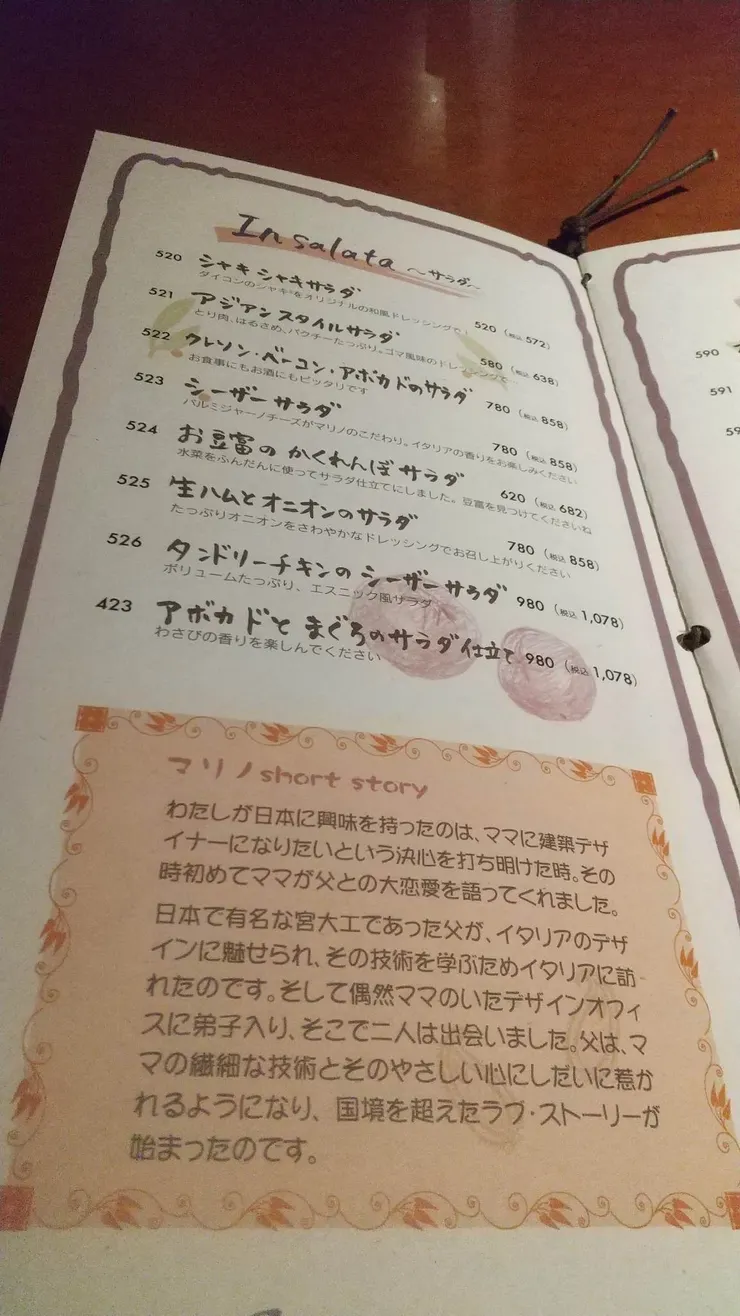 In salata ～サラダ～
520 シャキシャキサラダ
ダイコンのシャキ²をオリジナルの和風ドレッシングで！ 520（税込572）
521 アジアンスタイルサラダ
とり肉、はるさめ、パクチーたっぷり。ゴマ風味のドレッシングで 580（税込638）
522 クレソン・ベーコン・アボカドのサラダ 780（税込858）
お食事にもお酒にもピッタリです
523 シーザーサラダ 780（税込858）
パルミジャーノチーズがマリノのこだわり。イタリアの香りをお楽しみください
524 お豆富のかくれんぼサラダ 620（税込682）
水菜をふんだんに使ってサラダ仕立てにしました。豆富を見つけてくださいね
525 生ハムとオニオンのサラダ 780（税込858）
たっぷりオニオンをさわやかなドレッシングでお召し上がりください
526 タンドリーチキンのシーザーサラダ 980（税込1,078）
ボリュームたっぷり、エスニック風サラダ
423 アボカドとまぐろのサラダ仕立て 980（税込1,078）
わさびの香りを楽しんでください
マリノshort story
わたしが日本に興味を持ったのは、ママに建築デザ
イナーになりたいという決心を打ち明けた時。その
時初めてママが父との大恋愛を語ってくれました。
日本で有名な宮大工であった父が、イタリアのデザ
インに魅せられ、その技術を学ぶためイタリアに訪
れたのです。そして偶然ママのいたデザインオフィ
スに弟子入り、そこで二人は出会いました。父は、マ
マの繊細な技術とそのやさしい心にしだいに惹か
れるようになり、国境を超えたラブ・ストーリーが
始まったのです。
590
591